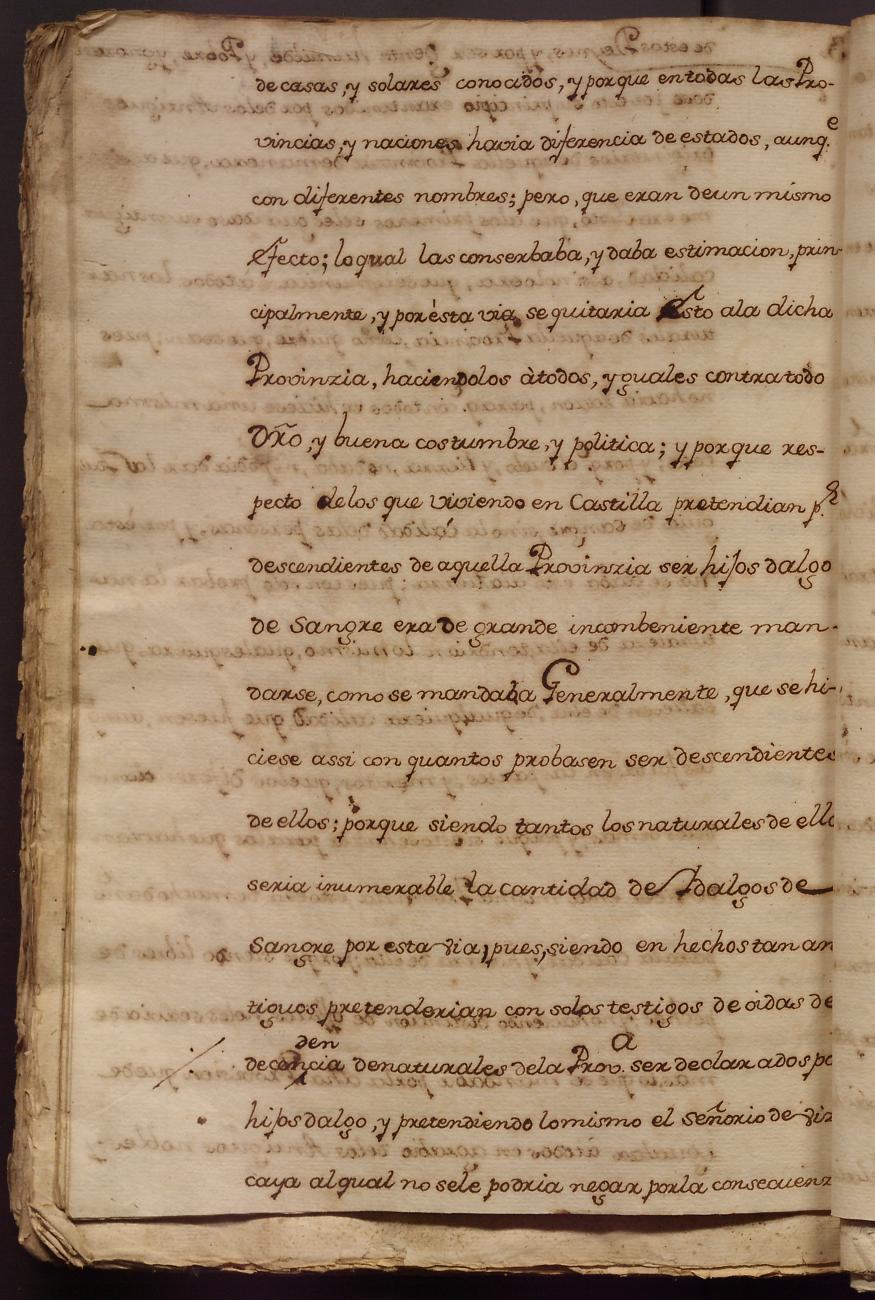 de casas, y solares conocidos, y porque en todas las Pro-
vincias, y naciones havia diferencia de estados, aunq.e
con diferentes nombres; pero, que eran de un mismo
Efecto; lo qual las conserbaba, y daba estimacion, prin-
cipalmente, y por ésta via se quitaria Esto ala dicha
Provinzia, haciendolos àtodos, yguales contra todo
Dřo, y buena costumbre, y politica; y por que res-
pecto delos que viviendo en Castilla pretendian p.r
descendientes de aquella Provinzia ser hijosdalgo
de Sangre era de grande incombeniente man-
darse, como se mandaba Generalmente, que se hi-
ciese assi con quantos probasen ser descendientes
de ellos; porque siendo tantos los naturales de ella
seria inumerable la cantidad de Idalgos de
Sangre por esta via, pues, siendo en hechos tan an
tiguos pretenderian con solos testigos de oidas de
den
decencia denaturales dela Prov.a ser declarados po
hijosdalgo, y pretendiendo lo mismo el señorio de viz
caya al qual no sele podria negar porla consecuenz